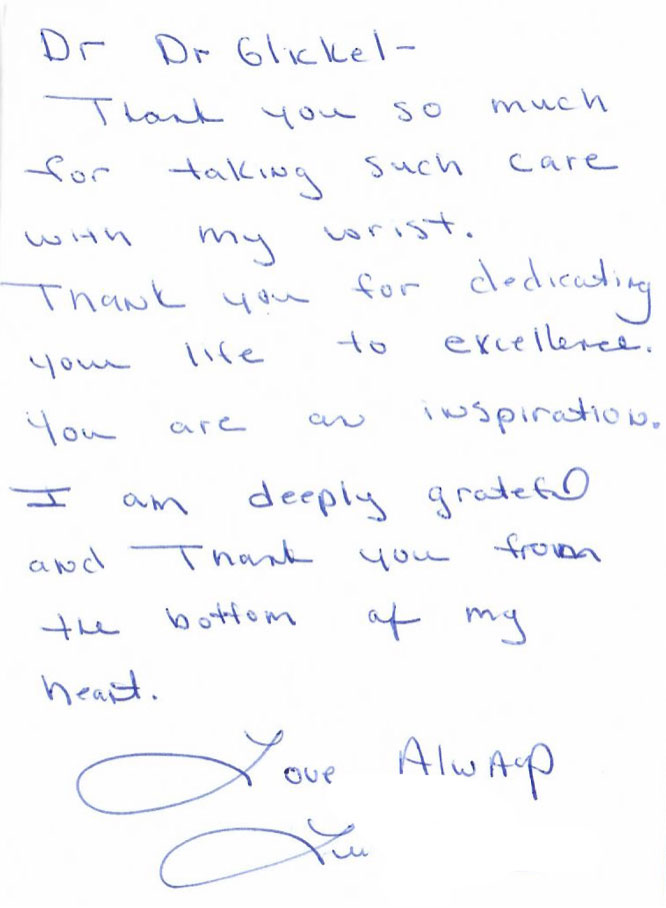 Dr Dr Glickel-
Thank you so much
for taking such care
with my wrist.
Thank you for dedicating
your life to excellence.
You are an inspiration.
I am deeply grateful
and Thank you from
the bottom of my
heart.
Love Always